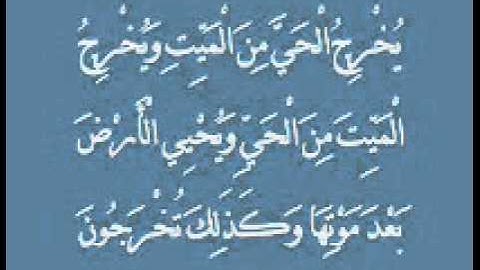 يُخْرِجُ الْحَيَّ مِنَ الْمَيِّتِ وَيُخْرِجُ
الْمَيِّتَ مِنَ الْحَيِّ وَيُحْيِي الْأَرْضَ
بَعْدَ مَوْتِهَا وَكَذَلِكَ تُخْرَجُونَ